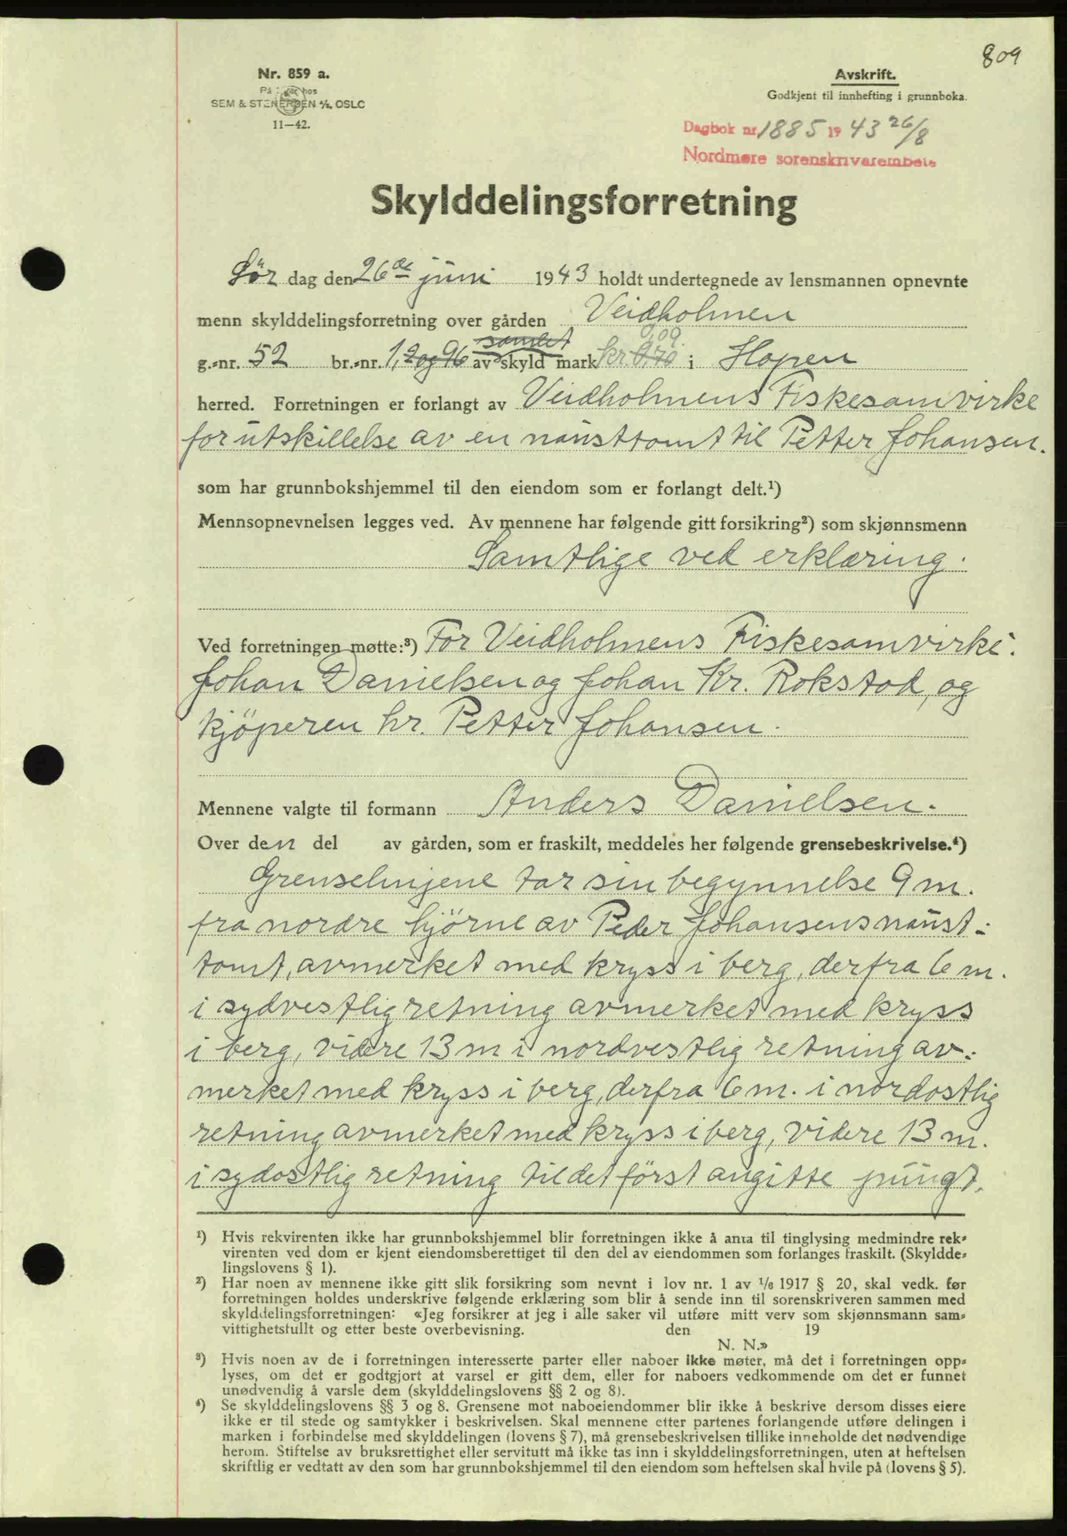 809
Nr. 859 a.
SEM & STENERSEN A/S, OSLO
11—42.
Avskrift.
Godkjent til innhefting i grunnboka.
Dagbok nr. 1885 1943 26/8
Nordmøre sorenskriverembete
Skylddelingsforretning
Lör dag den 26de juni 1943 holdt undertegnede av lensmannen opnevnte
menn skylddelingsforretning over gården Veidholmen
samlet 0,09
g.-nr. 52 br.-nr. 1, 2 og 96 av skyld mark kr. 0,70 i Hopen
herred. Forretningen er forlangt av Veidholmens Fiskesamvirke
for utskillelse av en nausttomt til Petter Johansen.
som har grunnbokshjemmel til den eiendom som er forlangt delt.¹)
Mennsopnevnelsen legges ved. Av mennene har følgende gitt forsikring²) som skjønnsmenn
Samtlige ved erklæring.
Ved forretningen møtte:³) For Veidholmens Fiskesamvirke:
Johan Danielsen og Johan Kr. Rokstad, og
kjöperen hr. Petter Johansen.
Mennene valgte til formann Anders Danielsen.
Over den del av gården, som er fraskilt, meddeles her følgende grensebeskrivelse.⁴)
Grenselinjene tar sin begynnelse 9 m.
fra nordre hjörne av Peder Johansens naust-
tomt, avmerket med kryss i berg, derfra 6 m.
i sydvestlig retning avmerket med kryss
i berg, videre 13 m i nordvestlig retning av-
merket med kryss i berg, derfra 6 m. i nordostlig
retning avmerket med kryss i berg, videre 13 m.
i sydostlig retning til det först angitte pungt.
¹) Hvis rekvirenten ikke har grunnbokshjemmel blir forretningen ikke å anta til tinglysing medmindre rek-
virenten ved dom er kjent eiendomsberettiget til den del av eiendommen som forlanges fraskilt. (Skyldde-
lingslovens § 1).
²) Har noen av mennene ikke gitt slik forsikring som nevnt i lov nr. 1 av 1/6 1917 § 20, skal vedk. før
forretningen holdes underskrive følgende erklæring som blir å sende inn til sorenskriveren sammen med
skylddelingsforretningen: «Jeg forsikrer at jeg i alle saker vil utføre mitt verv som skjønnsmann sam-
vittighetsfullt og etter beste overbevisning. den 19
N. N.»
³) Hvis noen av de i forretningen interesserte parter eller naboer ikke møter, må det i forretningen opp-
lyses, om det er godtgjort at varsel er gitt dem, eller for naboers vedkommende om det er funnet
unødvendig å varsle dem (skylddelingslovens §§ 2 og 8).
⁴) Se skylddelingslovens §§ 3 og 8. Grensene mot naboeiendommer blir ikke å beskrive dersom disses eiere
ikke er til stede og samtykker i beskrivelsen. Skal mennene etter partenes forlangende utføre delingen i
marken i forbindelse med skylddelingen (lovens § 7), må grensebeskrivelsen tillike inneholde det nødvendige
herom. Stiftelse av bruksrettighet eller servitutt må ikke tas inn i skylddelingsforretningen, uten at heftelsen
skriftlig er vedtatt av den som har grunnbokshjemmel til den eiendom som heftelsen skal hvile på (lovens § 5).